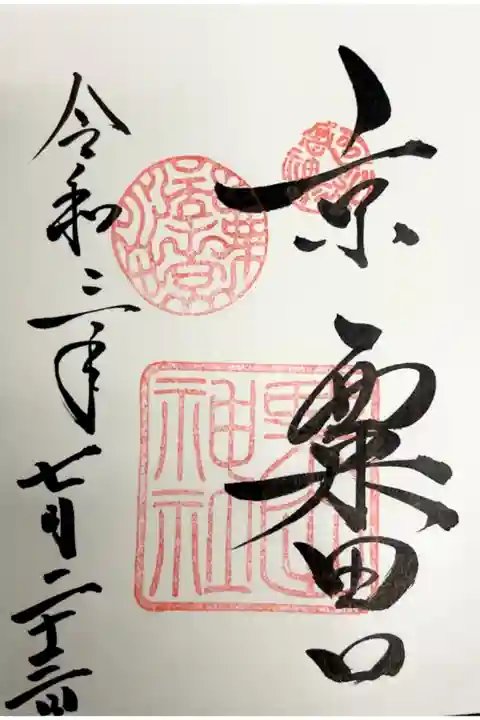 京 粟田口
令和三年七月二十三日
神社